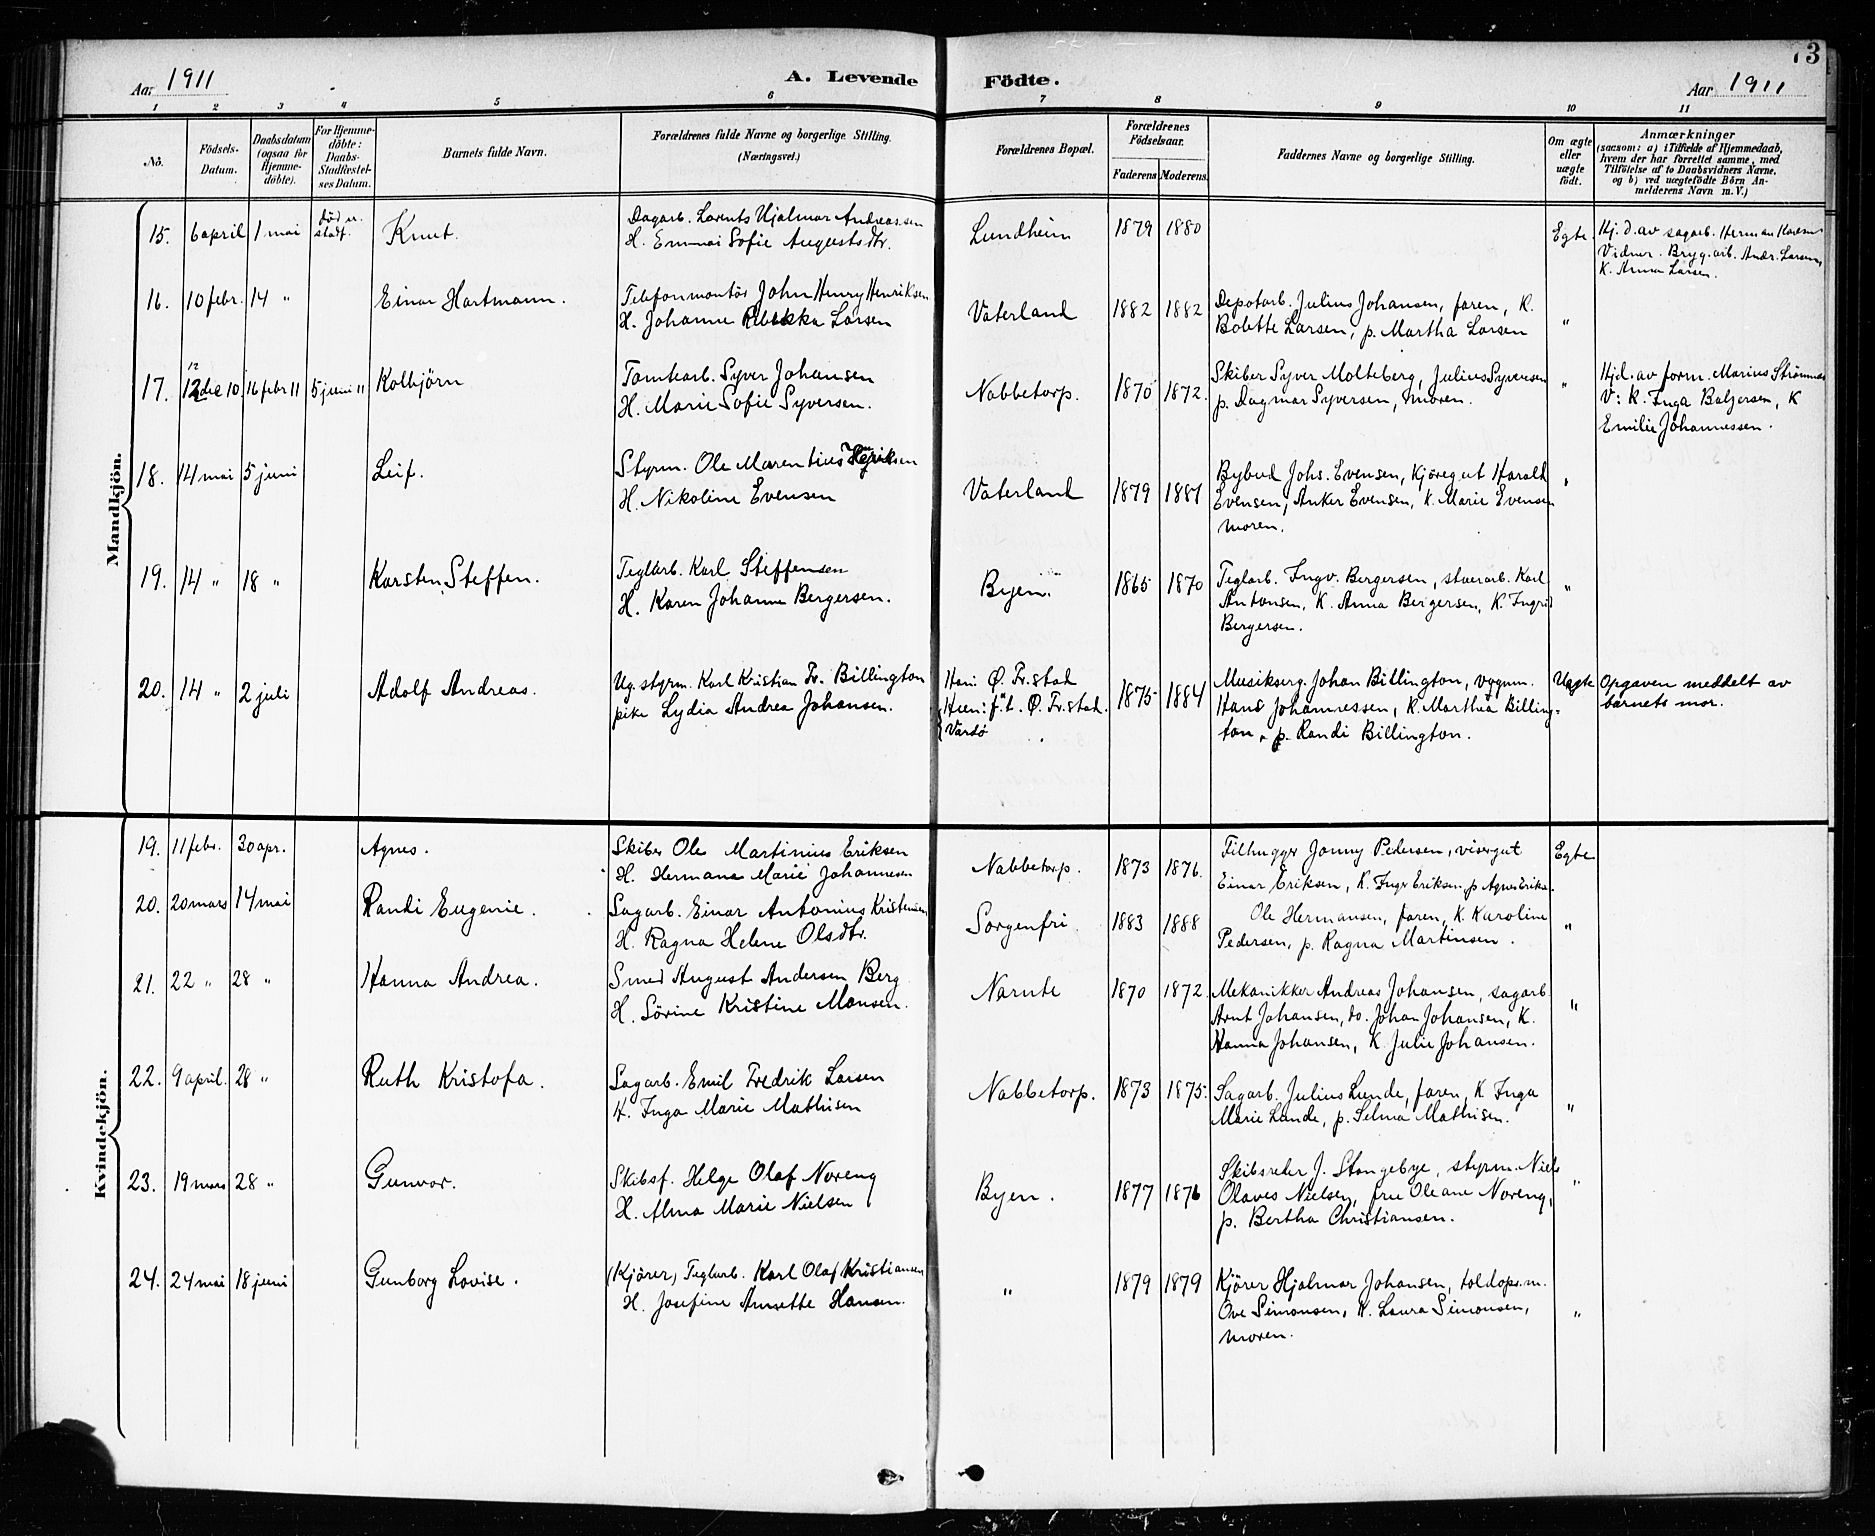 Aar 1911
A. Levende Födte.
Aar 1911
73
1 2 3 4 5 6 7 8 9 10 11
No.
Födsels-Datum.
Daabsdatum (ogsaa for Hjemme-döbte).
For Hjemme-döbte: Daabs-Stadfæstel-ses Datum.
Barnets fulde Navn.
Forældrenes fulde Navne og borgerlige Stilling.
(Næringsvei.)
Forældrenes Bopæl.
Forældrenes Födselsaar.
Faderens Moderens
Faddernes Navne og borgerlige Stilling.
Om ægte eller uægte födt.
Anmærkninger
(saasom: a) i Tilfælde af Hjemmedaab,
hvem der har forrettet samme, med
Tilföielse af to Daabsvidners Navne,
og b) ved uægtefödte Börn An-
melderens Navn m. V.)
Mandkjön.
15. 6 april 1 mai Död u. stadf. Knut. Dagarb. Lorents Hjalmar Andreassen Lundheim 1879 1880 Egte Hj. d. av sagarb. Herman
H. Emma Sofie Augustsdtr. Vidner. Bryg.arb. Andr. Larsen,
K. Anna Larsen.
16. 10 febr. 14 " Einar Hartmann. Telefonmontör John Henry Henriksen Vaterland 1882 1882 Depotarb. Julius Johansen, faren, K. "
H. Johanne Rebekka Larsen Bolette Larsen, p. Martha Larsen
17. 12 dec 10. 16 febr 11 5 juni 11 Kolbjörn Tomtearb. Syver Johansen Nabbetorp. 1870 1872. Skiber Syver Molteberg, Julius Syversen " Hjd. av form. Marius Strömnes
H. Marie Sofie Syversen. p. Dagmar Syversen, moren. V: K. Inga Bolgersen, K
Emilie Johannessen.
18. 14 mai 5 juni Leif. Styrm. Ole Marentius Vaterland 1879 1881 Bybud Johs. Evensen, Kjöregut Harald "
H. Nikoline Evensen Evensen, Anker Evensen, K. Marie Evensen
moren.
19. 14 " 18 " Karsten Steffen. Teglarb. Karl Steffensen Byen. 1865 1870 Teglarb. Ingv. Bergersen, stuerarb. Karl "
H. Karen Johanne Bergersen. Antonsen, K. Anna Bergersen, K. Ingrid
Bergersen.
20. 14 " 2 juli Adolf Andreas. Ug. styrm. Karl Kristian Fr. Billington Han: Ø. Fr.stad 1875 1884 Musikserg. Johan Billington, vognm. Uegte Opgaven meddelt av
pike Lydia Andrea Johansen. Hun: f. t. Ø. Fr.stad. Hans Johannessen, K. Martha Billing- barnets mor.
Vardö ton, p. Randi Billington.
Kvindekjön.
19. 11 febr. 30 apr. Agnes. Skiber Ole Martinius Eriksen Nabbetorp. 1873 1876. Filhugger Jonny Pedersen, visergut Egte
H. Hermana Marie Johannesen Einar Eriksen, K. Inga Eriksen p Agnes Eriks.
20. 20 mars 14 mai Randi Eugenie. Sagarb. Einar Antonius Kristensen Sorgenfri 1883 1888 Ole Hermansen, faren, K. Karoline "
H. Ragna Helene Olsdtr. Pedersen, p. Ragna Martinsen.
21. 22 " 28 " Hanna Andrea. Smed August Andersen Berg Narnte 1870 1872. Mekanikker Andreas Johansen, sagarb. "
H. Sörine Kristine Monsen. Arnt Johansen, do. Johan Johansen, K.
Hanna Johansen, K. Julie Johansen.
22. 9 april. 28 " Ruth Kristofa. Sagarb. Emil Fredrik Larsen Nabbetorp. 1873 1875. Sagarb. Julius Lunde, faren, K. Inga "
H. Inga Marie Mathisen Marie Lunde, p. Selma Mathisen.
23. 19 mars 28 " Gunvor. Skibsf. Helge Olaf Noreng Byen. 1877 1876 Skibsreder J. Stangebye, styrm. Niels "
H. Alma Marie Nielsen Olaves Nielsen, frue Oleane Noreng,
p. Bertha Christiansen.
24. 24 mai 18 juni Gunborg Lovise. (Kjörer) Teglarb. Karl Olaf Kristiansen " 1879 1879 Kjörer Hjalmar Johansen, toldops.m. "
H. Josefine Annette Hansen. Ove Simonsen, K. Laura Simonsen,
moren.